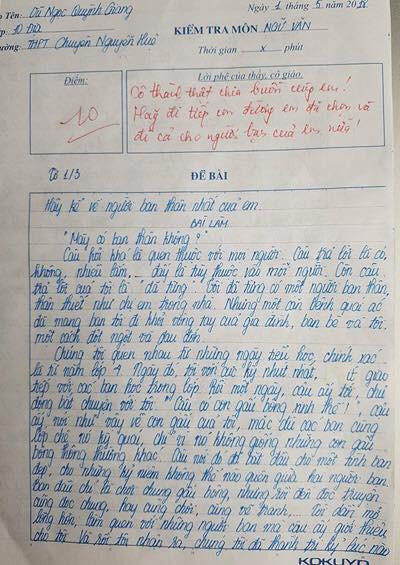 Họ Tên: Vũ Ngọc Quỳnh Giang
Lớp: 10 Địa
Trường: THPT Chuyên Nguyễn Huệ
Ngày 1 tháng 5 năm
KIỂM TRA MÔN NGỮ VĂN
Thời gian x phút
Điểm:
10
Lời phê của thầy, cô giáo.
Cô thành thật chia buồn cùng em!
Hãy đi tiếp con đường em đã chọn và
đi cả cho người bạn của em nữa!
ĐỀ BÀI
Hãy kể về người bạn thân nhất của em
BÀI LÀM
"Mày có bạn thân không?"
Câu hỏi khá là quen thuộc với mọi người. Câu trả lời là có,
không, nhiều lắm,... đấy là tùy thuộc vào mỗi người. Còn câu
trả lời của tôi là "đã từng". Tôi đã từng có một người bạn thân,
thân thiết như chị em trong nhà. Nhưng một căn bệnh quái ác
đã mang bạn tôi đi khỏi vòng tay của gia đình, bạn bè và tôi
một cách đột ngột và đau đớn.
Chúng tôi quen nhau từ những ngày tiểu học, chính xác
là từ năm lớp 4. Ngày đó, tôi vốn cực kỳ nhút nhát, ít giao
tiếp với các bạn học trong lớp. Rồi một ngày, cậu ấy tới, chủ
động bắt chuyện với tôi: "Cậu có con gấu bông xinh thế!", cậu
ấy nói như vậy về con gấu của tôi, mặc dù các bạn cùng
lớp chê nó kỳ quái, chỉ vì nó không giống những con gấu
bông thông thường khác. Câu nói đó đã bắt đầu cho một tình bạn
đẹp, cho những kỷ niệm không thể nào quên giữa hai người bạn.
Ban đầu chỉ là chơi chung gấu bông, nhưng rồi đến đọc truyện
cùng đọc chung, hay cùng chơi, cùng vẽ tranh,... Tôi dần mở
lòng hơn, làm quen với những người bạn mà cậu ấy giới thiệu
cho tôi. Và rồi tôi nhận ra, chúng tôi đã thành tri kỷ lúc nào
KOKUYO